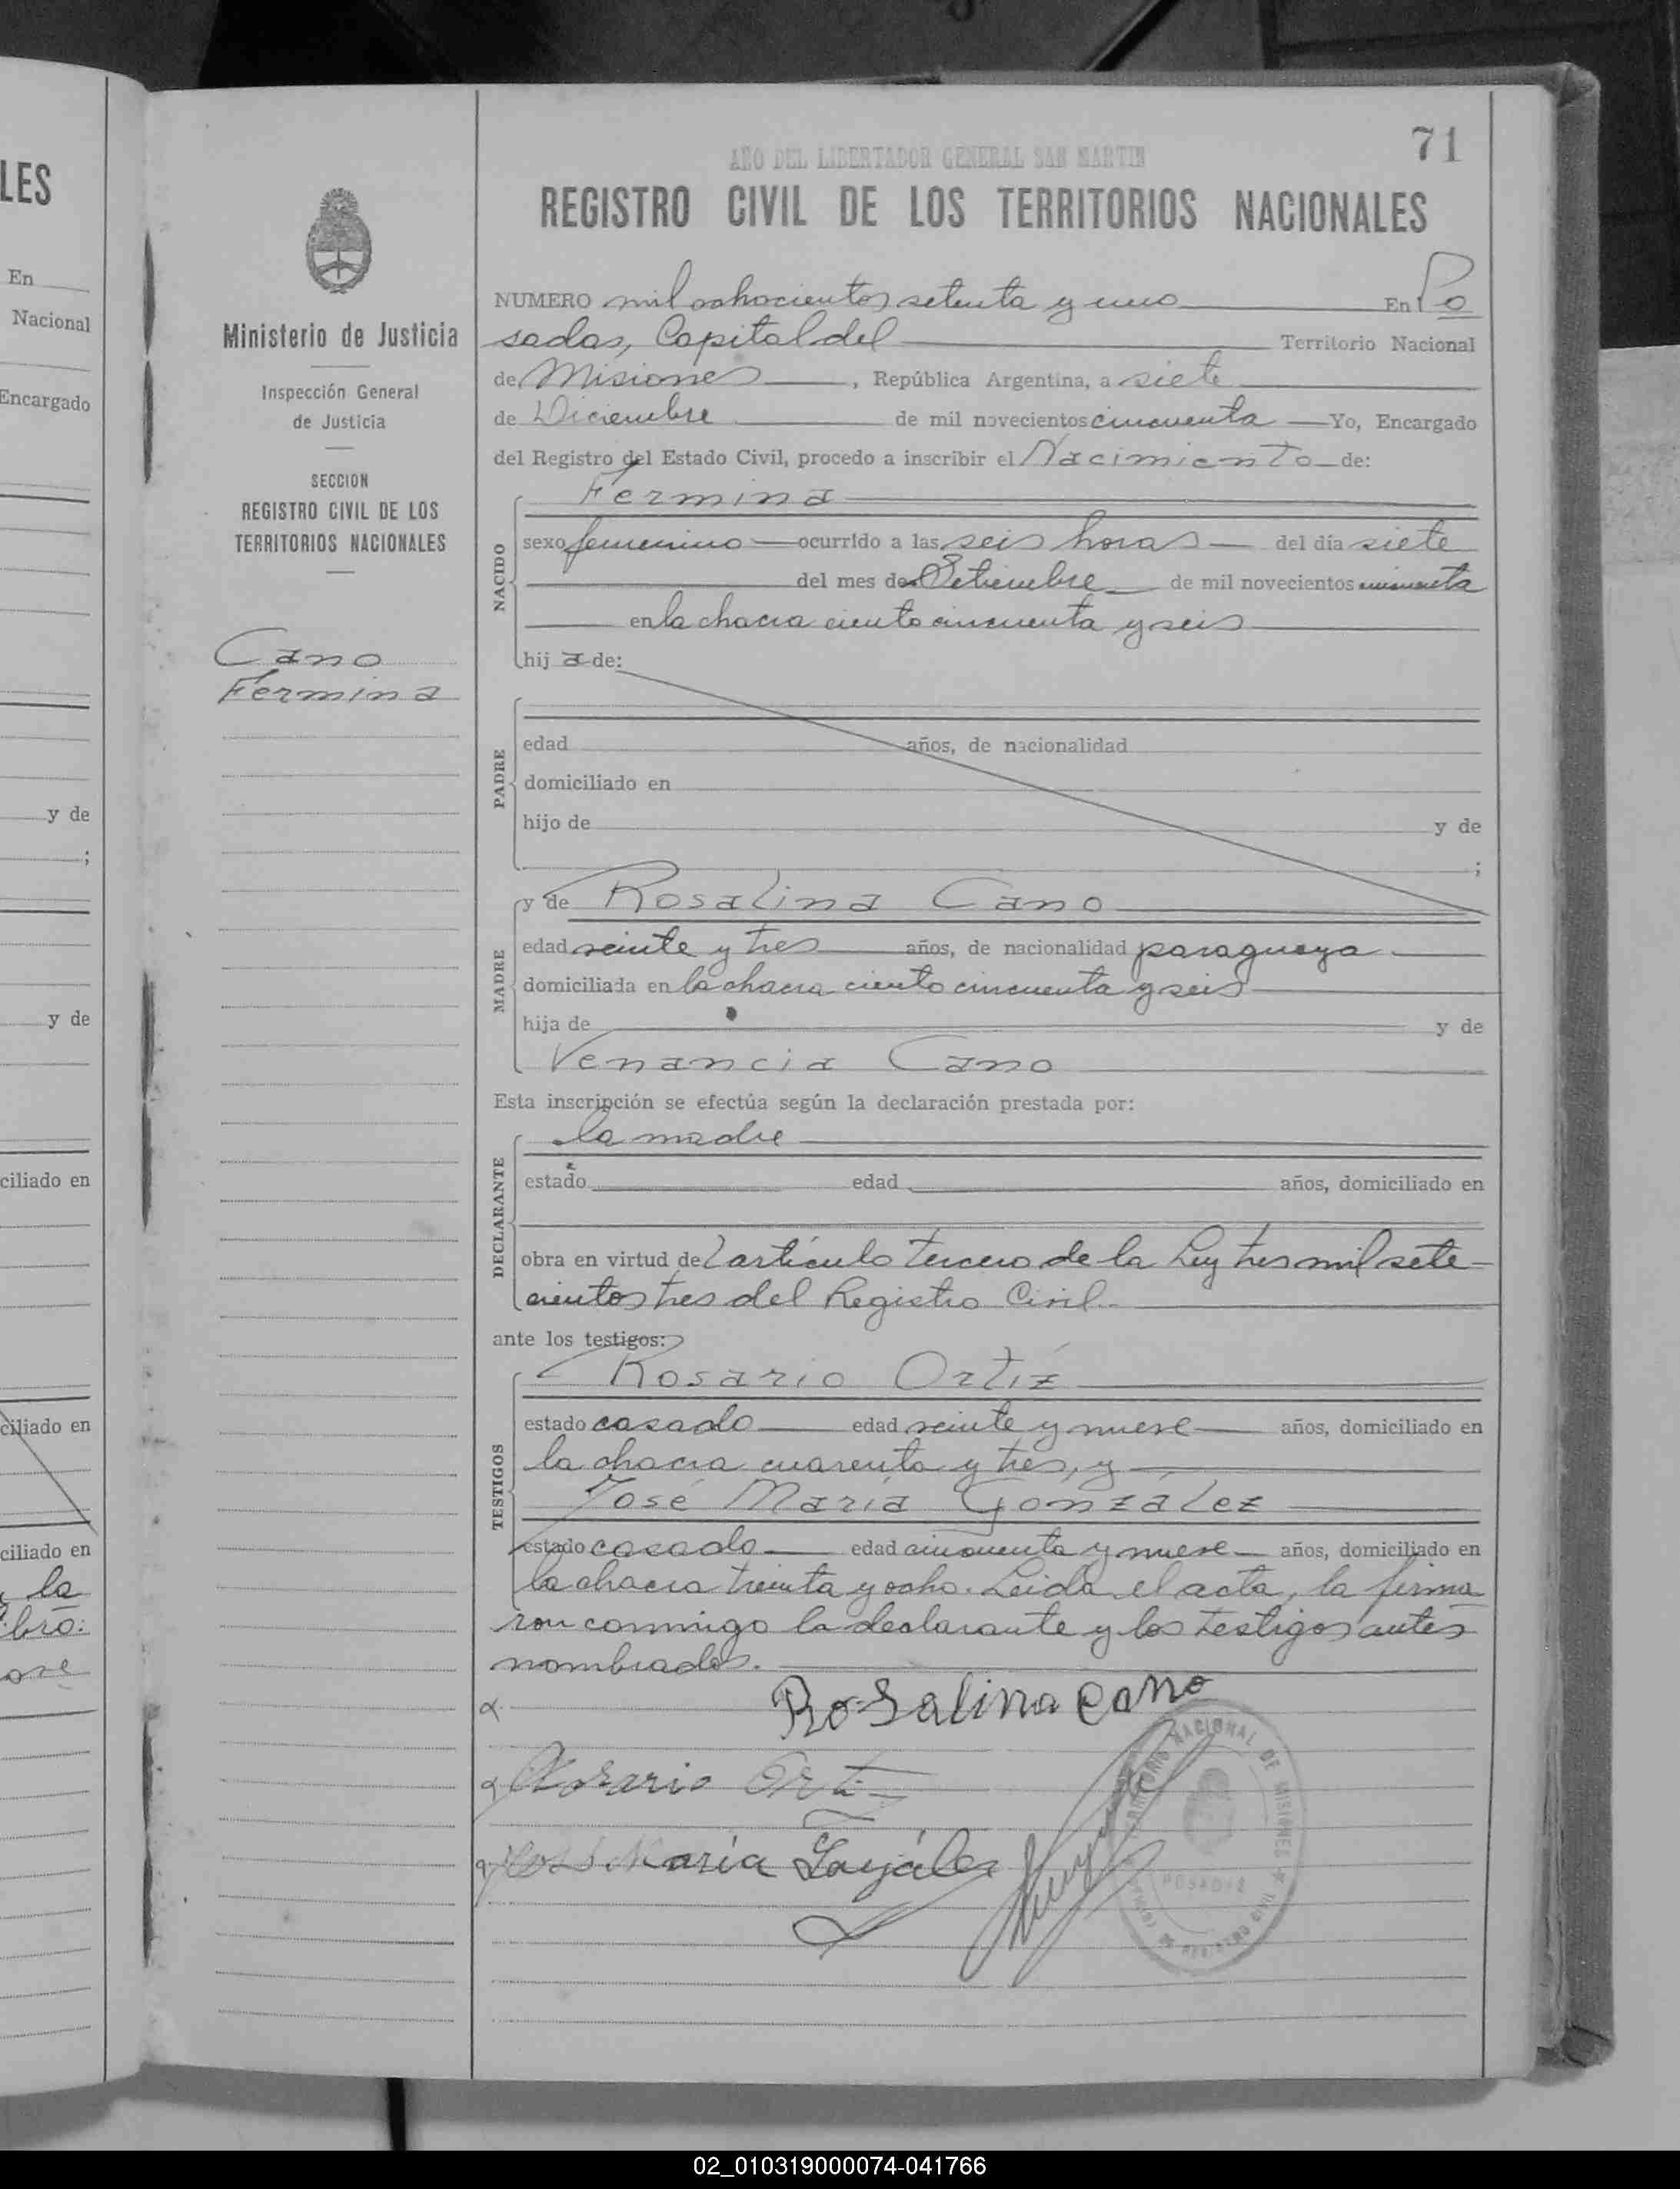 LES
En
Nacional
Encargado
y de
;
y de
ciliado en
ciliado en
ciliado en
la
bro:
Ministerio de Justicia
Inspección General
de Justicia
SECCION
REGISTRO CIVIL DE LOS
TERRITORIOS NACIONALES
Cano
Fermina
71
AÑO DEL LIBERTADOR GENERAL SAN MARTIN
REGISTRO CIVIL DE LOS TERRITORIOS NACIONALES
NUMERO mil ochocientos setenta y uno En Po
sadas, Capital del Territorio Nacional
de Misiones, República Argentina, a siete
de Diciembre de mil novecientos cincuenta Yo, Encargado
del Registro del Estado Civil, procedo a inscribir el Nacimiento de:
NACIDO
Fermina
sexo femenino ocurrido a las seis horas del día siete
del mes de Setiembre de mil novecientos cincuenta
en la chacra ciento cincuenta y seis
hij a de:
PADRE
edad años, de nacionalidad
domiciliado en
hijo de y de
;
MADRE
y de Rosalina Cano
edad veinte y tres años, de nacionalidad paraguaya
domiciliada en la chacra ciento cincuenta y seis
hija de y de
Venancia Cano
Esta inscripción se efectúa según la declaración prestada por:
DECLARANTE
la madre
estado edad años, domiciliado en
obra en virtud del artículo tercero de la Ley tres mil sete-
cientos tres del Registro Civil.
ante los testigos:
TESTIGOS
Rosario Ortíz
estado casado edad veinte y nueve años, domiciliado en
la chacra cuarenta y tres, y
José María González
estado casado edad cincuenta y nueve años, domiciliado en
la chacra treinta y ocho. Leida el acta, la firma
ron conmigo la declarante y los testigos antes
nombrados.
Rosalina Cano
Rosario Ort
José María Gonzáles
TERRITORIO NACIONAL DE MISIONES
POSADAS
02_010319000074-041766